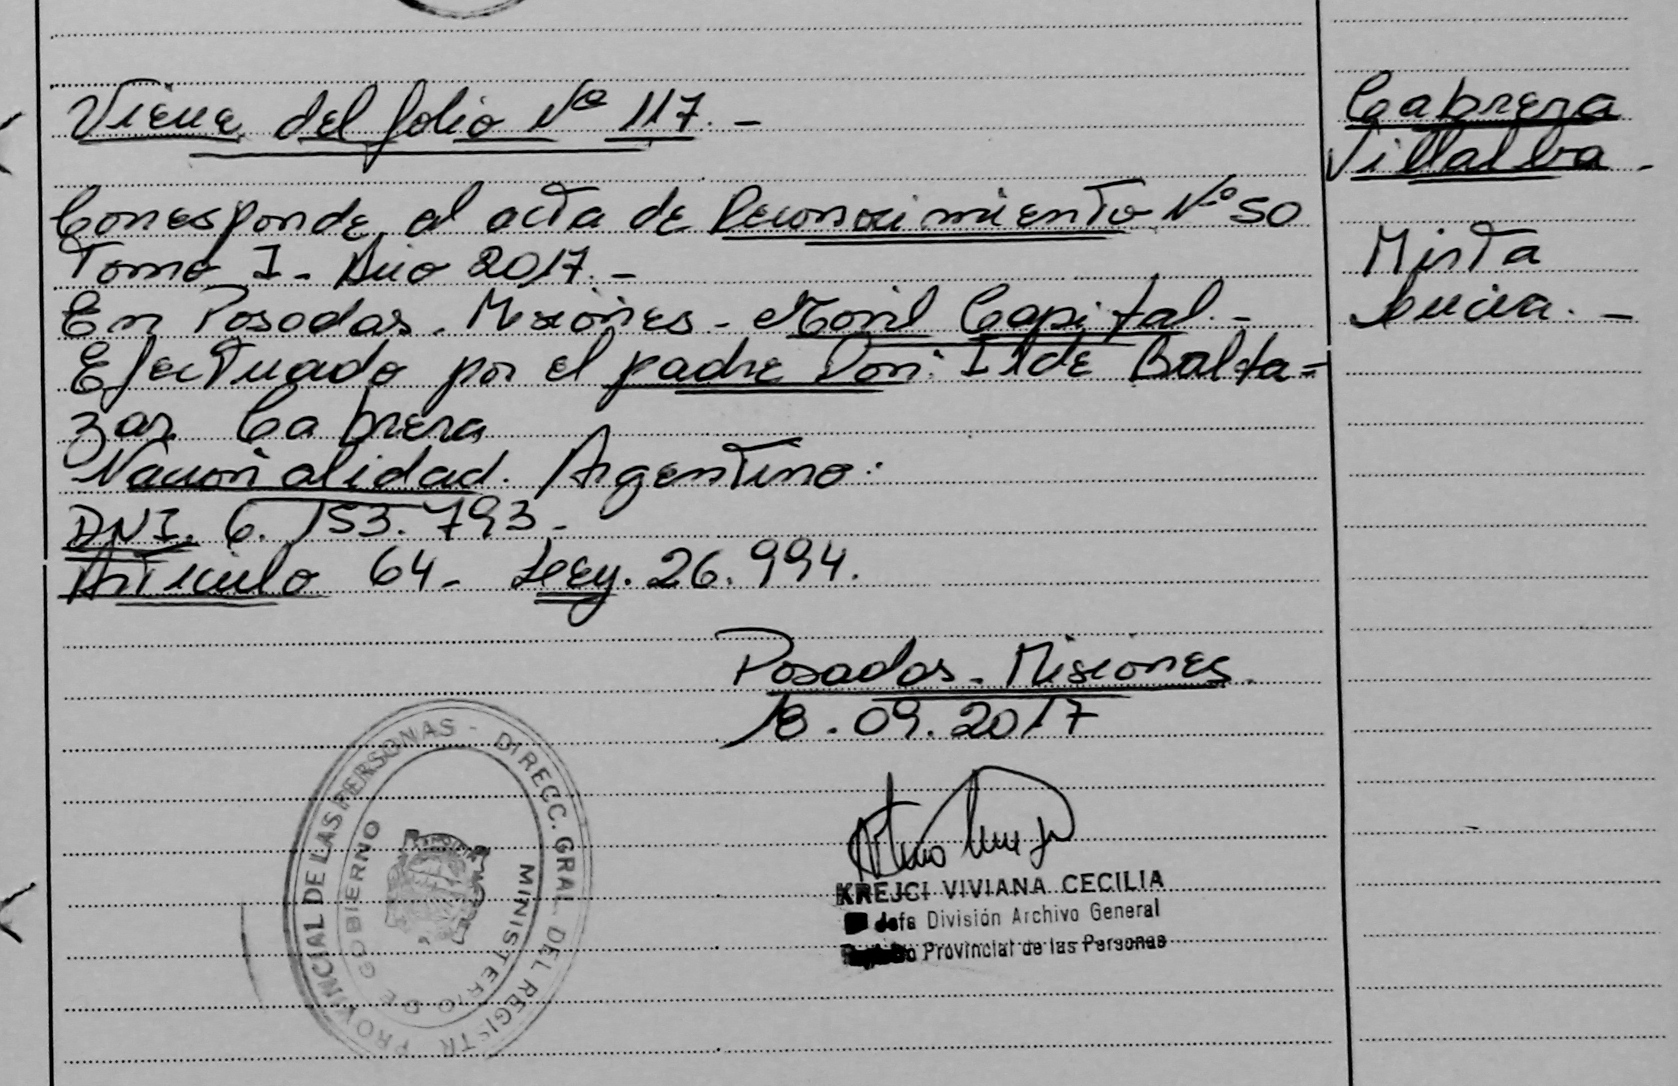 Viene del folio Nº 117. -
Corresponde al acta de Reconocimiento Nº 50
Tomo I - Año 2017. -
En Posadas. Misiones - Móvil Capital. -
Efectuado por el padre Don: Ilde Balta=
zar Cabrera
Nacionalidad. Argentino.
DNI. 6.153.793.-
Artículo 64 - Ley. 26.994.
Posadas - Misiones.
18.09.2017
KREJCI VIVIANA CECILIA
Jefa División Archivo General
Provincial de las Personas
Cabrera
Villalba -
Mirta
Lucia. -
DIRECC. GRAL. DEL REGISTR PROVINCIAL DE LAS PERSONAS -
MINISTERIO DE GOBIERNO